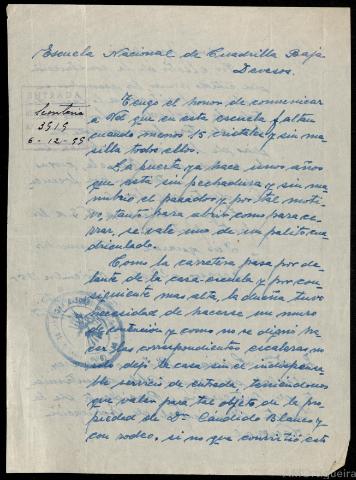 Escuela Nacional de Cuadrilla Baja
Devesos.
Secretaria
3515
6-12-55
Tengo el honor de comunicar
a Vd que en esta escuela faltan
cuando menos 15 cristales y sin ma-
silla todos ellos.
La puerta ya hace unos años
que está sin pechadura y sin ma-
nubrio el pasador y por tal moti-
vo, tanto para abrir como para ce-
rrar, se vale uno de un palito cua-
driculado.
Como la carretera pasa por de-
lante de la casa-escuela y por con-
siguiente mas alta, la dueña tuvo
necesidad de hacerse un muro
de contención y como no se dignó ha-
cer las correspondientes escaleras
dejó la casa sin el indispensa-
ble servicio de entrada, teniéndonos
que valer para tal objeto de la pro-
piedad de Dn Cándido Blanco y
con rodeo, si no que convirtió est